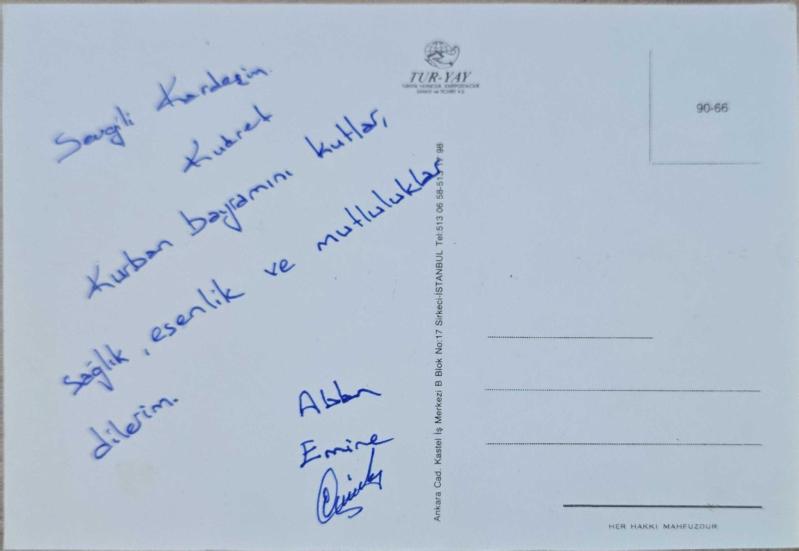 Sevgili Kardeşim
Kudret
Kurban bayramını kutlar,
sağlık, esenlik ve mutluluklar
dilerim.
Ablan
Emine
TUR-YAY
Ankara Cad. Kastel İş Merkezi B Blok No:17 Sirkeci-İSTANBUL Tel:513 06 58-513 17 98
90-66
HER HAKKI MAHFUZDUR